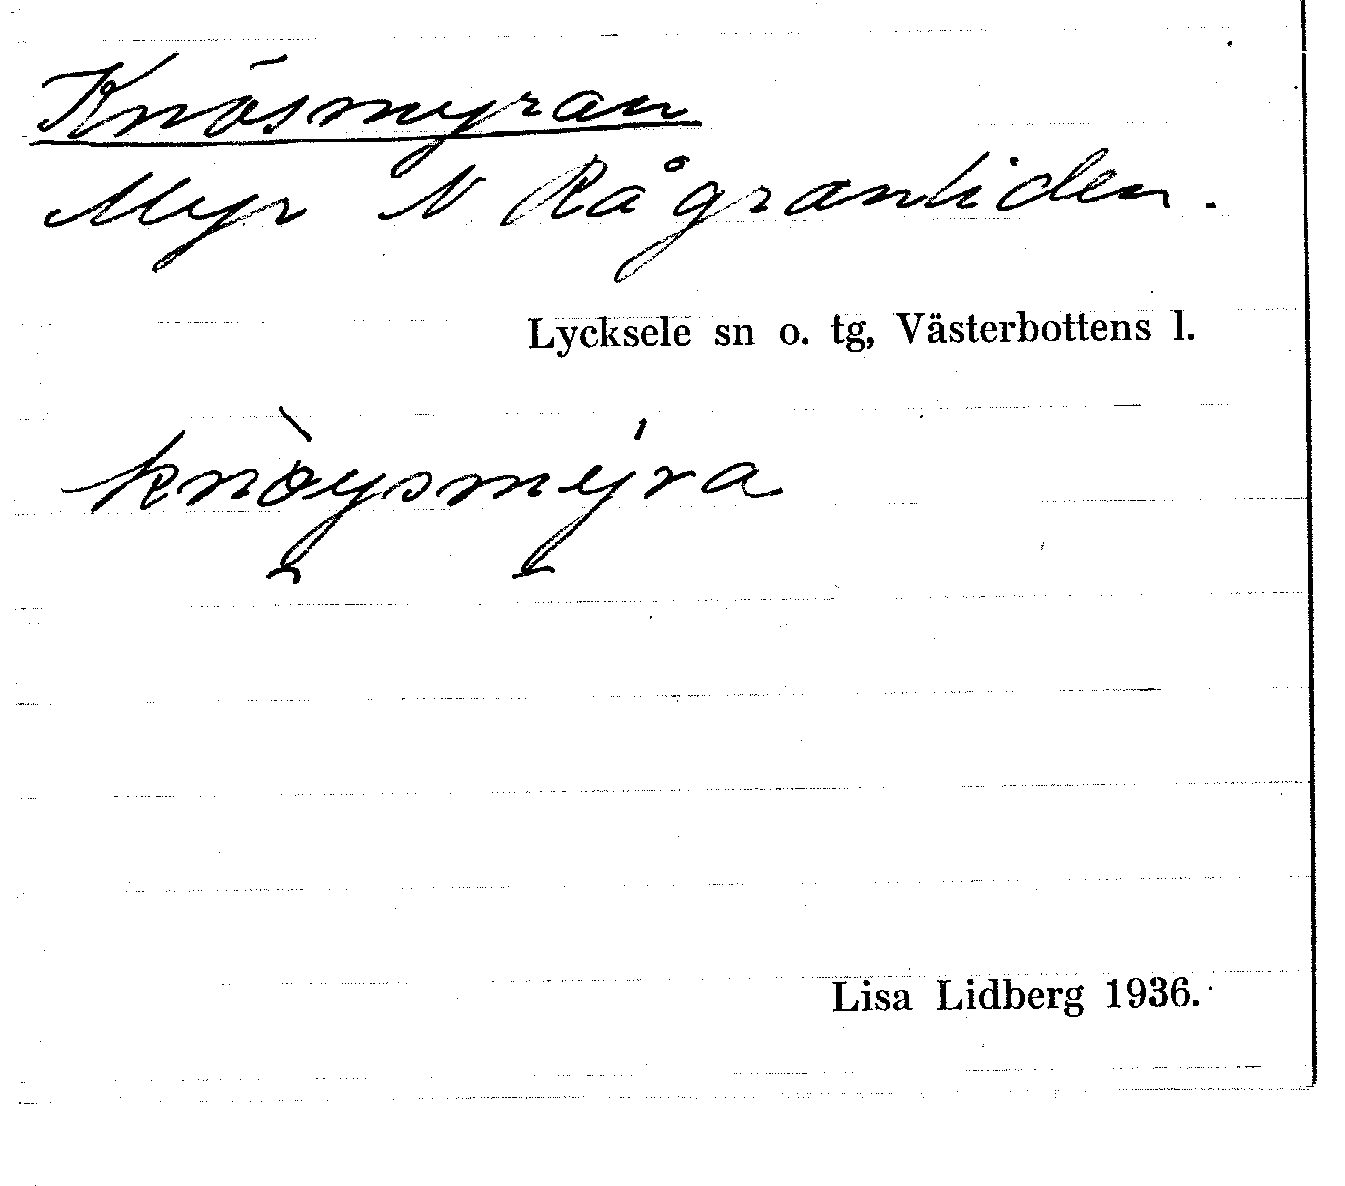 Knösmyran
Myr N Rågranliden.
Lycksele sn o. tg, Västerbottens l.
knöysmyra
Lisa Lidberg 1936.